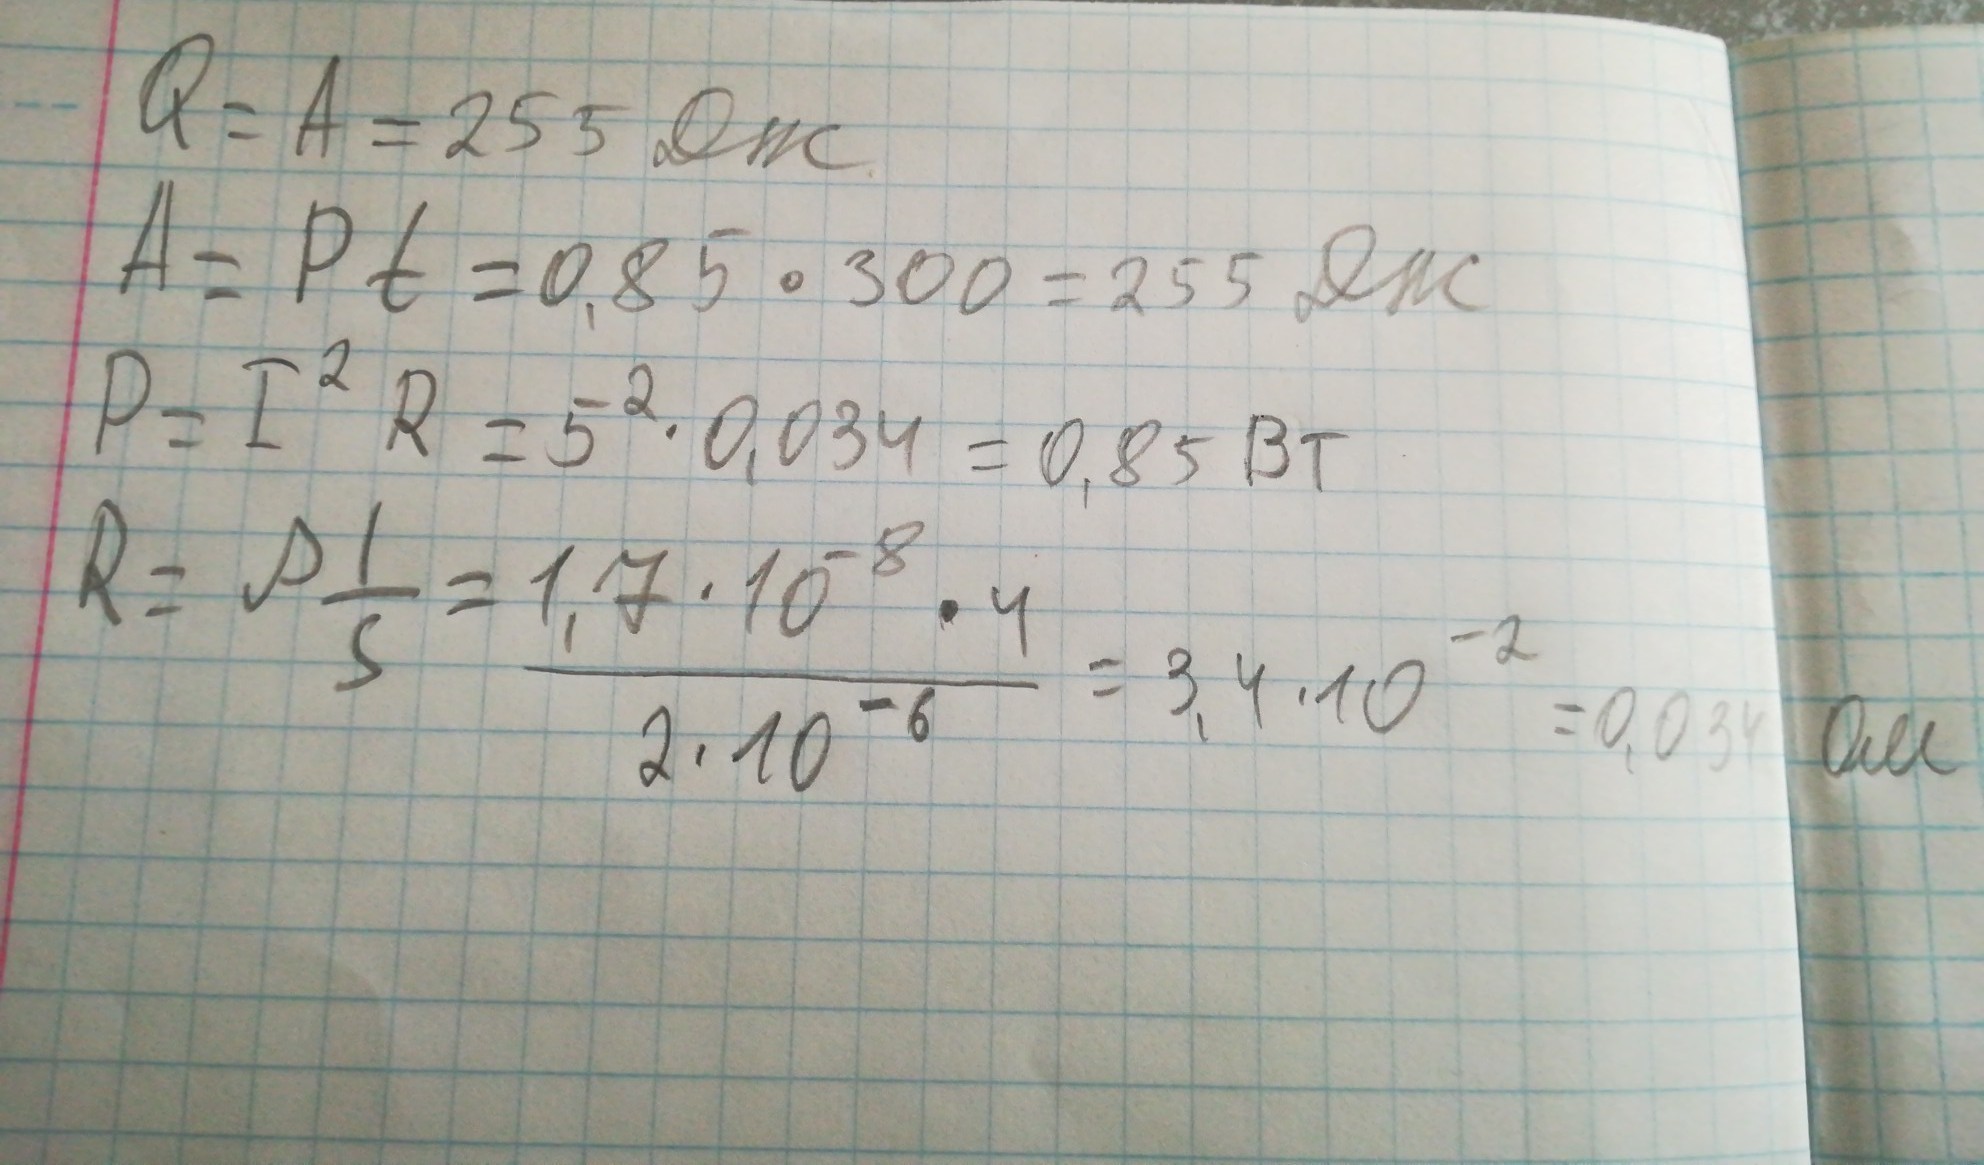 Q = A = 255 Дж.
A = P t = 0,85 • 300 = 255 Дж
P = I² R = 5² · 0,034 = 0,85 Вт
R = ρ l/S = 1,7 · 10⁻⁸ · 4 / 2 · 10⁻⁶ = 3,4 · 10⁻² = 0,034 Ом